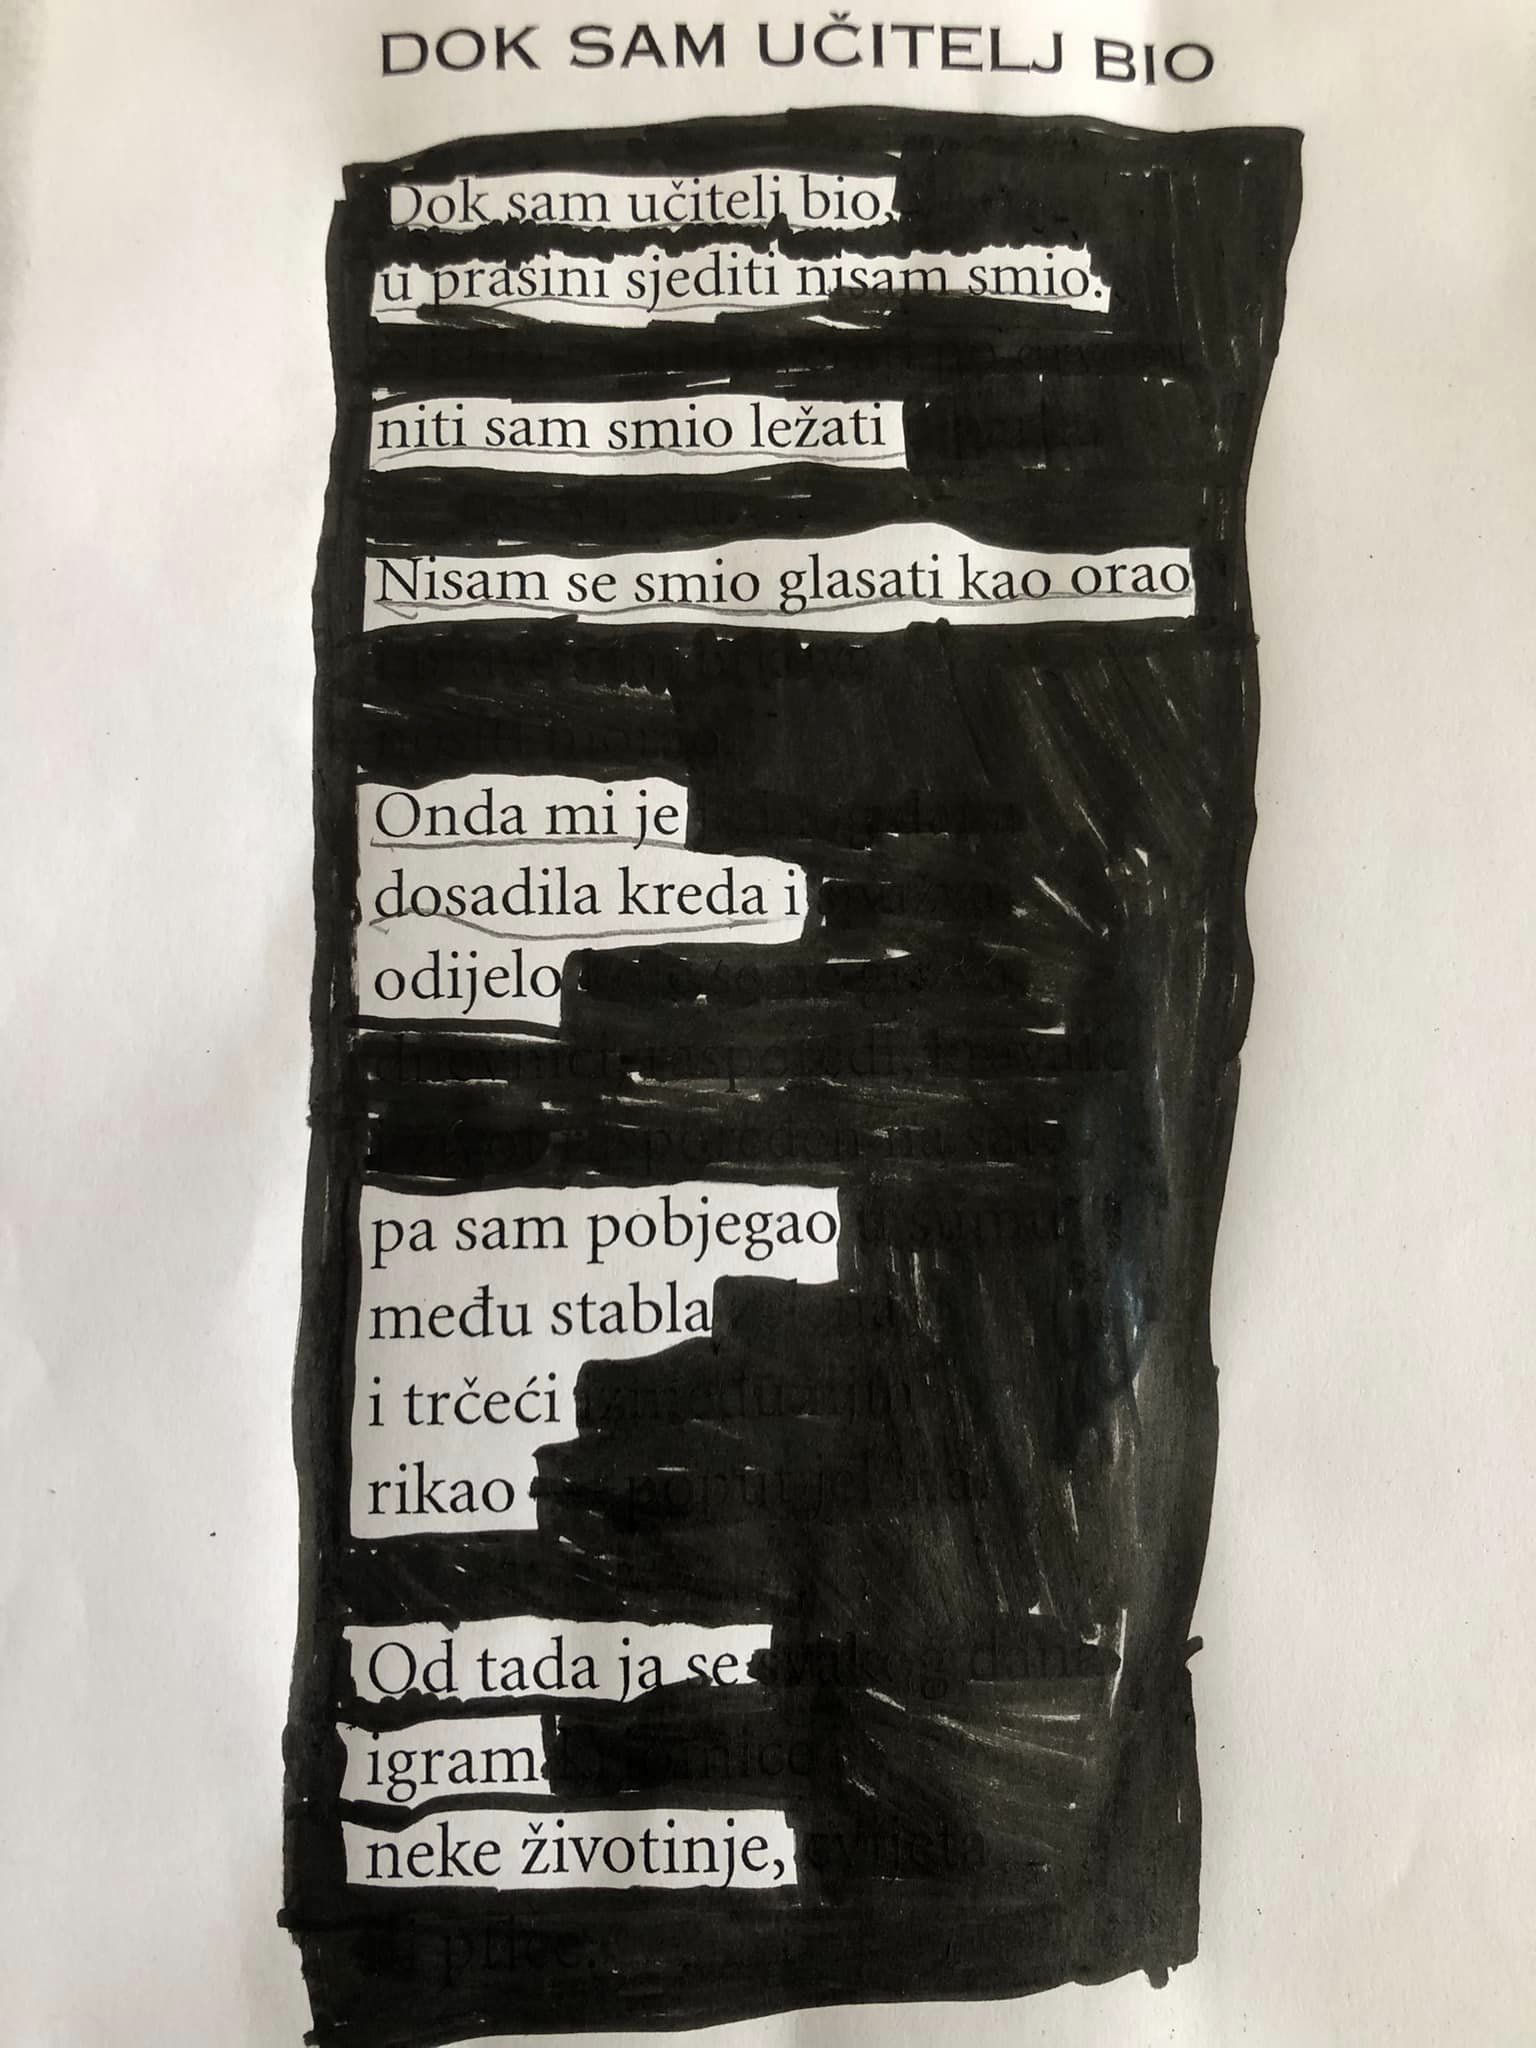 DOK SAM UČITELJ BIO
Dok sam učitelj bio,
u prašini sjediti nisam smio.
niti sam smio ležati
Nisam se smio glasati kao orao
Onda mi je
dosadila kreda i
odijelo
pa sam pobjegao
među stabla
i trčeći
rikao
Od tada ja se
igram
neke životinje,